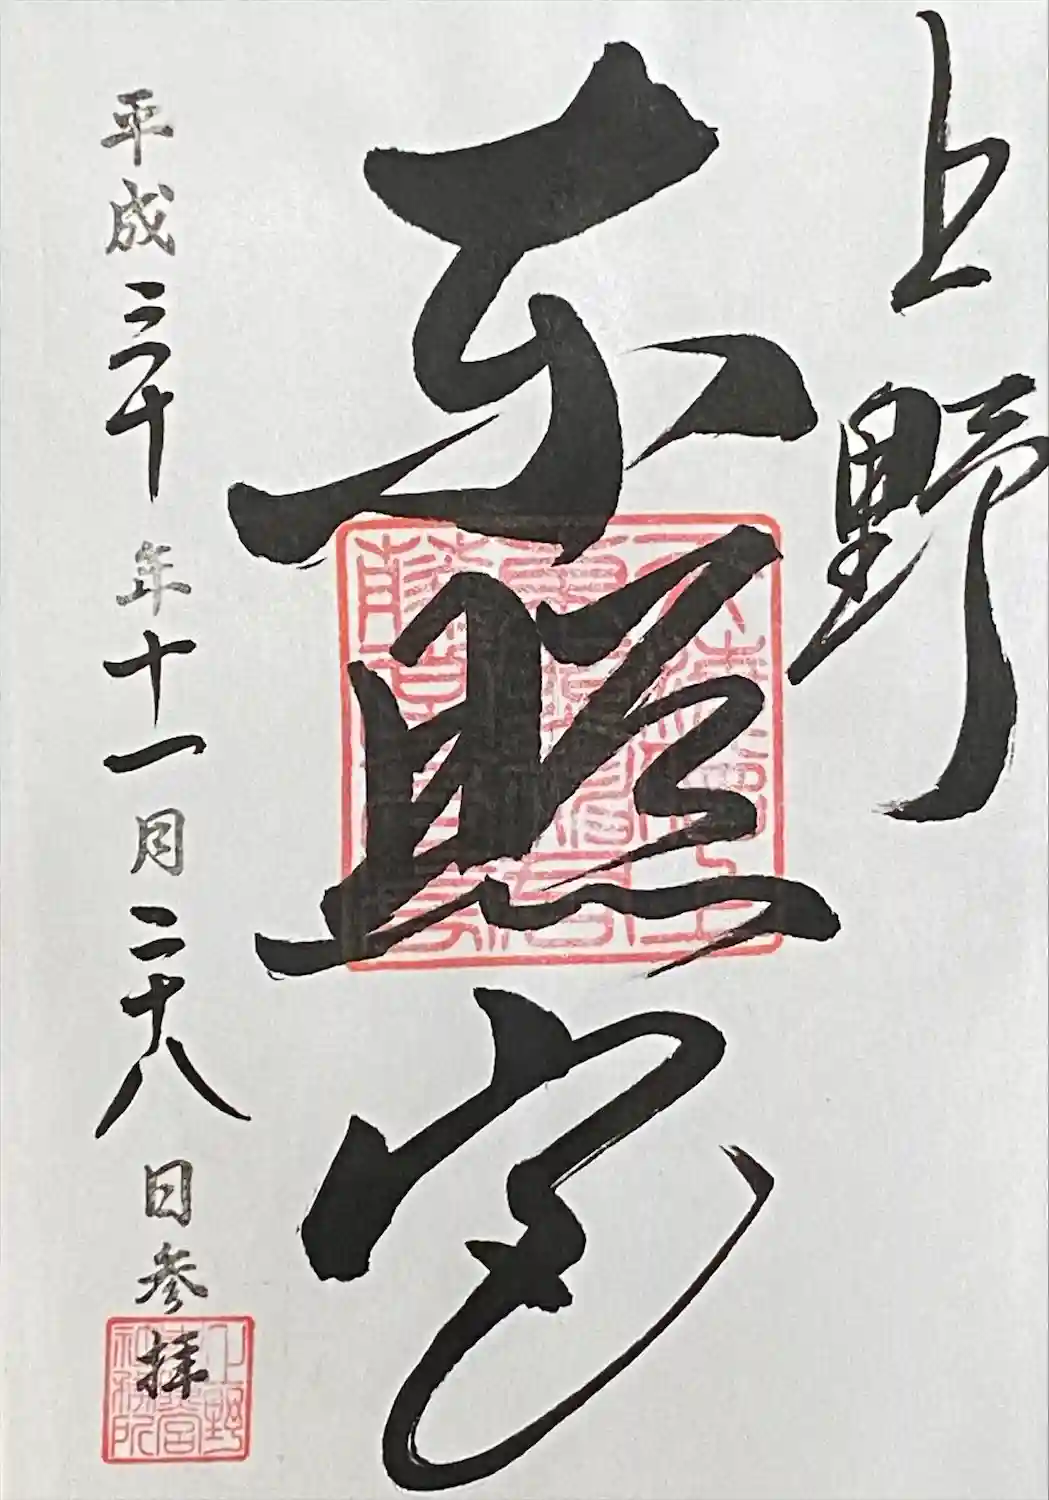 上野
東照宮
平成三十年十一月二十八日参拝
上野
東照宮
社務所